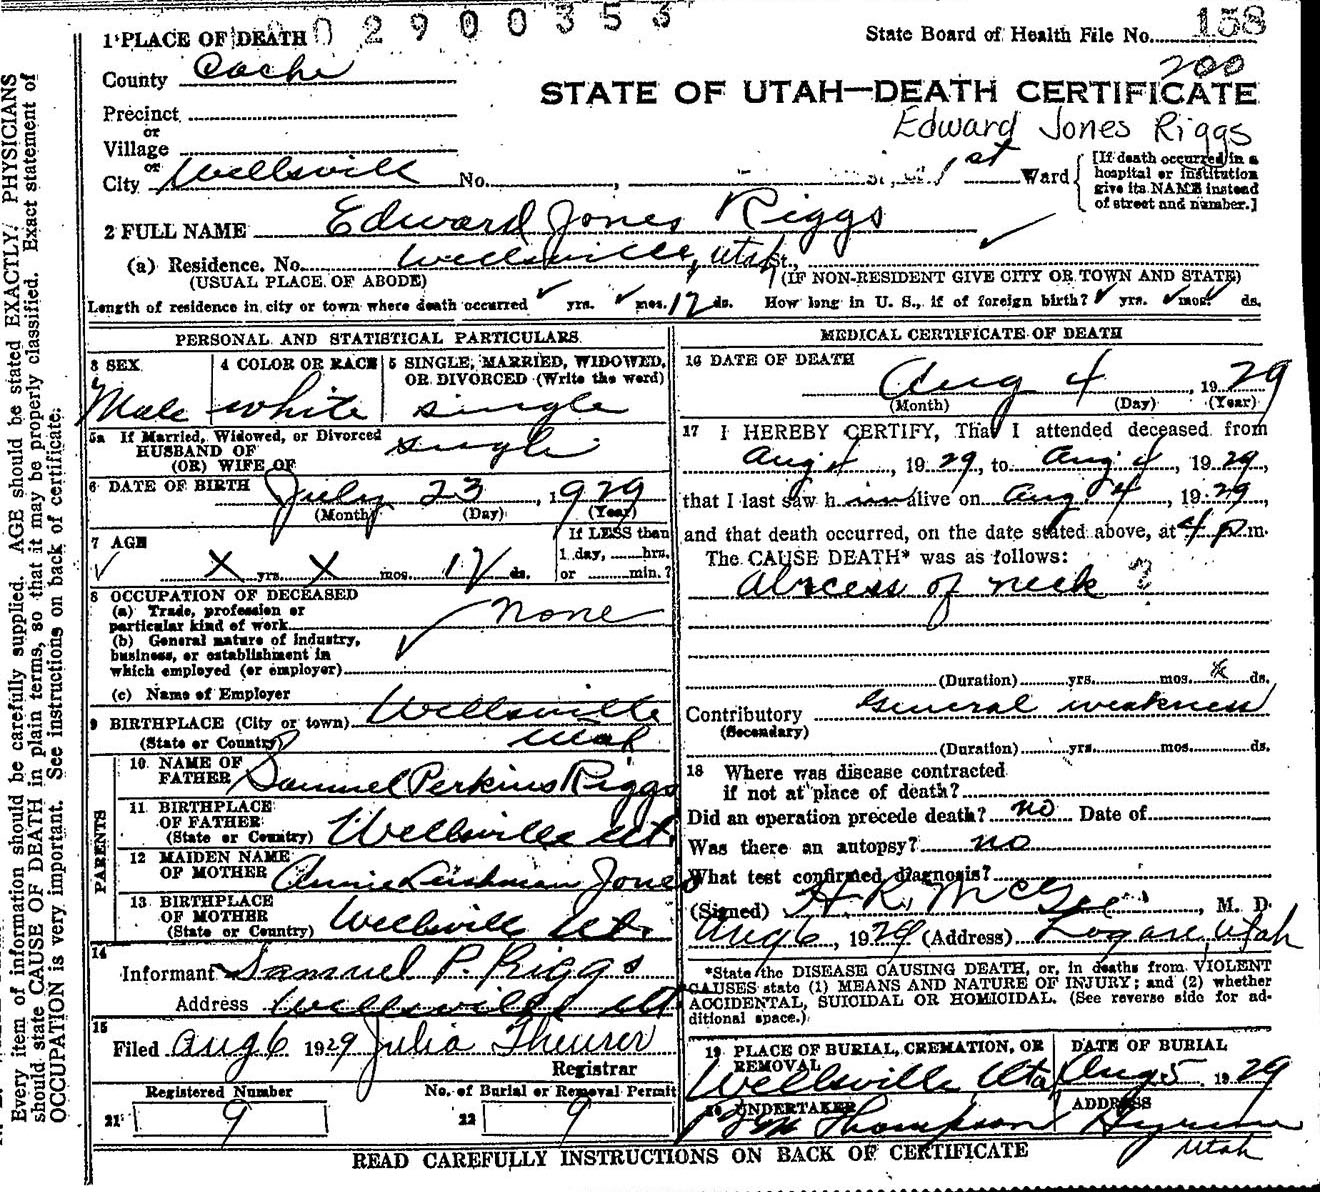 0 2 9 0 0 3 5 3
158
1 PLACE OF DEATH
State Board of Health File No.
County Cache
200
STATE OF UTAH—DEATH CERTIFICATE
Precinct
or
Edward Jones Riggs
Village
or
City Wellsvill No. , St., 1st Ward
[If death occurred in a hospital or institution give its NAME instead of street and number.]
2 FULL NAME Edward Jones Riggs
(a) Residence. No. Wellsville, Utah St.,
(USUAL PLACE OF ABODE) (IF NON-RESIDENT GIVE CITY OR TOWN AND STATE)
Length of residence in city or town where death occurred ✓ yrs. ✓ mos. 12 ds. How long in U. S., if of foreign birth? ✓ yrs. ✓ mos. ✓ ds.
PERSONAL AND STATISTICAL PARTICULARS
3 SEX
Male
4 COLOR OR RACE
white
5 SINGLE, MARRIED, WIDOWED,
OR DIVORCED (Write the word)
single
5a If Married, Widowed, or Divorced
HUSBAND OF
(OR) WIFE OF
single
6 DATE OF BIRTH July 23, 1929
(Month) (Day) (Year)
7 AGE
X yrs. X mos. 12 ds.
If LESS than
1 day, hrs.
or min.?
8 OCCUPATION OF DECEASED
(a) Trade, profession or
particular kind of work None
(b) General nature of industry,
business, or establishment in
which employed (or employer)
(c) Name of Employer
9 BIRTHPLACE (City or town) Wellsville
(State or Country) Utah
PARENTS
10 NAME OF
FATHER Samuel Perkins Riggs
11 BIRTHPLACE
OF FATHER
(State or Country) Wellsville Ut.
12 MAIDEN NAME
OF MOTHER Annie Leishman Jones
13 BIRTHPLACE
OF MOTHER
(State or Country) Wellsville Ut.
14
Informant Samuel P. Riggs
Address Wellsville Ut
15
Filed Aug 6 1929 Julia Theurer
Registrar
Registered Number No. of Burial or Removal Permit
21 9 22 9
MEDICAL CERTIFICATE OF DEATH
16 DATE OF DEATH
Aug 4, 1929
(Month) (Day) (Year)
17 I HEREBY CERTIFY, That I attended deceased from
Aug 4, 1929, to Aug 4, 1929,
that I last saw him alive on Aug 4, 1929,
and that death occurred, on the date stated above, at 4 p m.
The CAUSE DEATH* was as follows:
Abscess of neck ?
(Duration) yrs. mos. ds.
Contributory General weakness
(Secondary)
(Duration) yrs. mos. ds.
18 Where was disease contracted
if not at place of death?
Did an operation precede death? no Date of
Was there an autopsy? no
What test confirmed diagnosis?
(Signed) H.R. McGee, M. D.
Aug 6, 1929 (Address) Logan, Utah
*State the DISEASE CAUSING DEATH, or, in deaths from VIOLENT
CAUSES state (1) MEANS AND NATURE OF INJURY; and (2) whether
ACCIDENTAL, SUICIDAL OR HOMICIDAL. (See reverse side for ad-
ditional space.)
19 PLACE OF BURIAL, CREMATION, OR
REMOVAL
Wellsville Uta
DATE OF BURIAL
Aug 5 1929
20 UNDERTAKER
Thompson
ADDRESS
Hyrum
Utah
READ CAREFULLY INSTRUCTIONS ON BACK OF CERTIFICATE
Every item of information should be carefully supplied. AGE should be stated EXACTLY. PHYSICIANS
should state CAUSE OF DEATH in plain terms, so that it may be properly classified. Exact statement of
OCCUPATION is very important. See instructions on back of certificate.